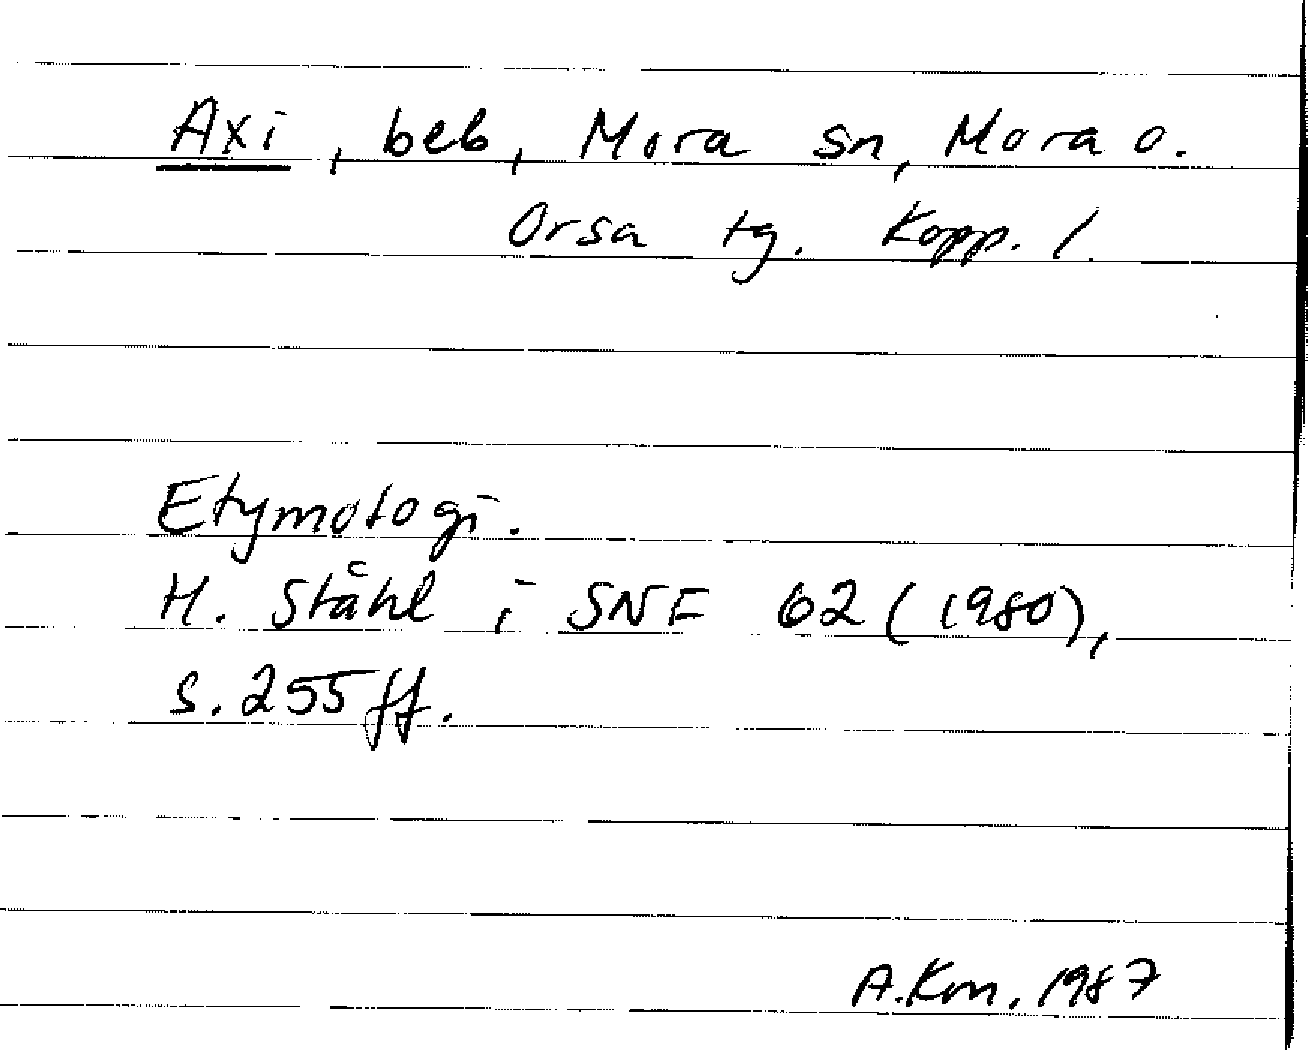 Axi, beb, Mora sn, Mora o.
Orsa tg. Kopp. l.
Etymologi.
H. Ståhl i SNF 62 (1980),
s. 255 ff.
A.Km, 1987